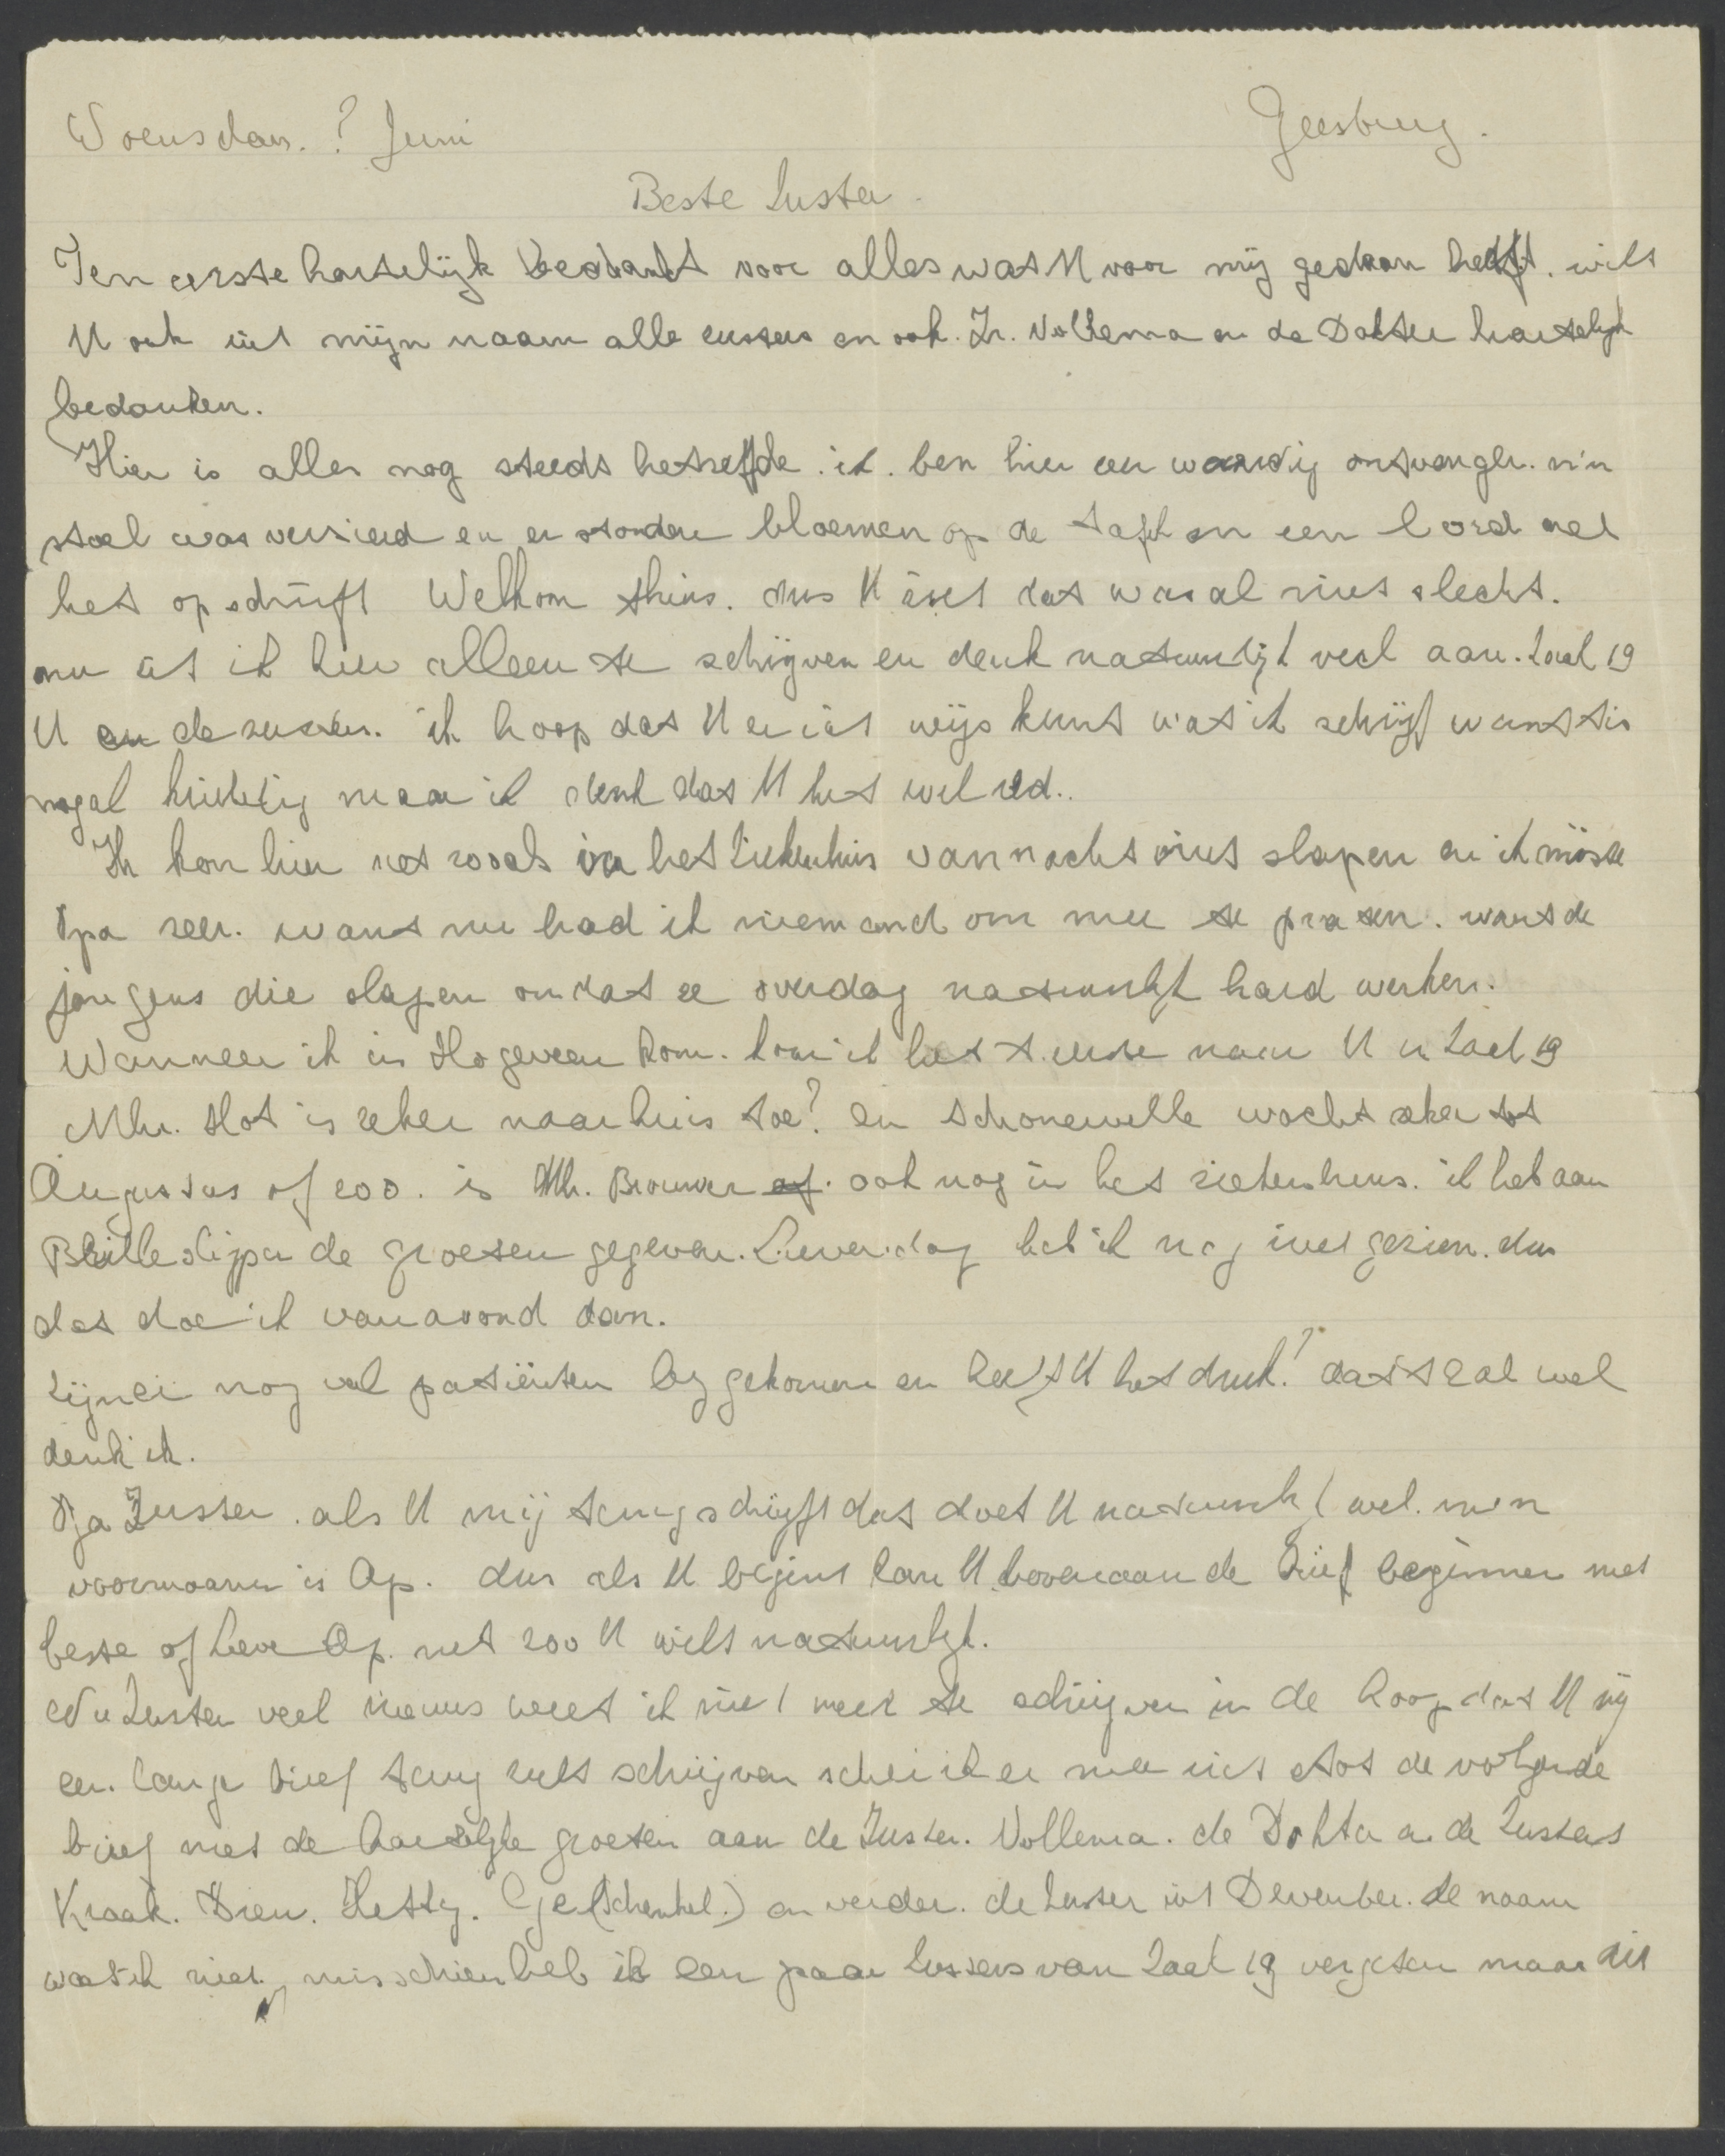 Woensdag. ? Juni
Geesbrug.
Beste Zuster.
Ten eerste hartelijk bedankt voor alles wat U voor mij gedaan heeft. wilt
U ook uit mijn naam alle zusters en ook. Zr. Vollema en de Dokter hartelijk
bedanken.
Hier is alles nog steeds hetzelfde. ik ben hier eer waardig ontvangen. m'n
stoel was versierd en er stonden bloemen op de tafel en een bord met
het opschrift Welkom thuis. dus U ziet dat was al niet slecht.
nu zit ik hier alleen te schrijven en denk natuurlijk veel aan. Zaal 19
U en de zusters. ik hoop dat U er uit wijs kunt wat ik schrijf want tis
nogal kriebelig maar ik denk dat U het wel red..
Ik kon hier net zoals in het Ziekenhuis vannacht niet slapen en ik miste
Opa zeer. want nu had ik niemand om mee te praten. want de
jongens die slapen omdat ze overdag natuurlijk hard werken.
Wanneer ik in Hogeveen kom. kom ik het eerste naar U in Zaal 19
Mhr. Slot is zeker naar huis toe? en Schonewille wacht zeker tot
Augustus of zoo. is Mh. Brouwer ook nog in het ziekenhuis. ik heb aan
Brilleslijper de groeten gegeven. Lieverdag heb ik nog niet gezien. dus
dat doe ik vanavond dan.
Zijn er nog veel patiënten bij gekomen en heeft U het druk? dat zal wel
denk ik.
Ja Zuster. als U mij terug schrijft dat doet U natuurlijk wel. m'n
voornaam is Ap. dus als U begint kan U bovenaan de brief beginnen met
beste of lieve Ap. net zoo U wilt natuurlijk.
Nu Zuster veel nieuws weet ik niet meer te schrijven in de hoop dat U mij
een lange brief terug zult schrijven schei ik er mee uit tot de volgende
brief met de hartelijke groeten aan de Zuster. Vollema. de Dokter en de Zusters
Kraak. Dien. Hetty. Ge (Schenkel.) en verder. de Zuster uit Deventer. de naam
weet ik niet. misschien heb ik een paar Zusters van Zaal 19 vergeten maar dit